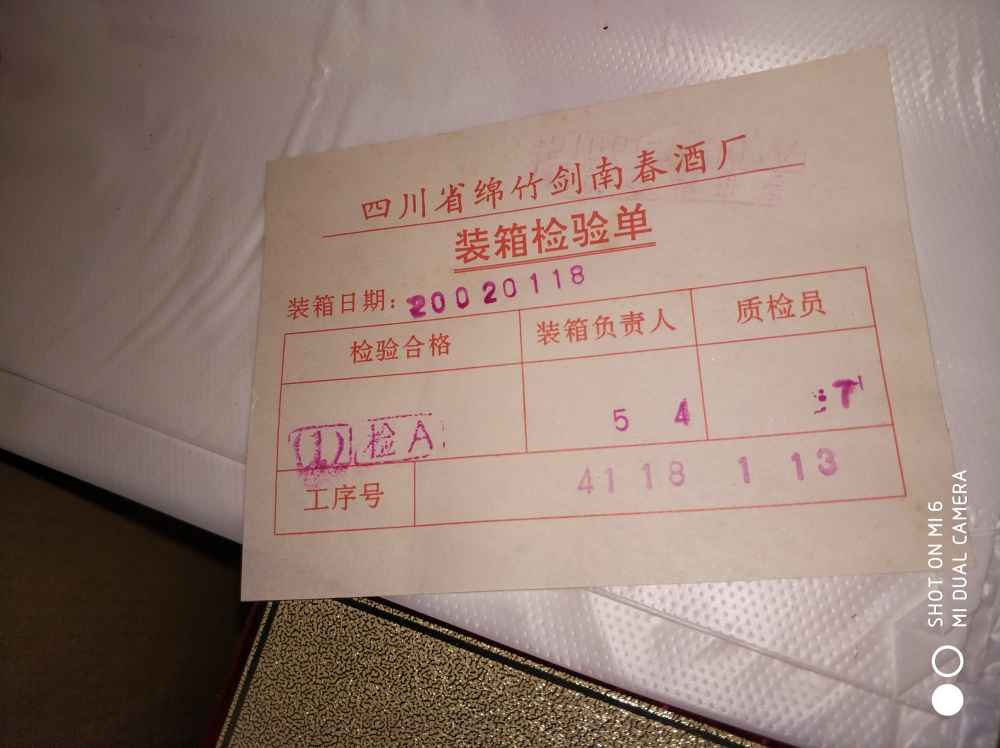 四川省绵竹剑南春酒厂
装箱检验单
装箱日期: 20020118
检验合格 装箱负责人 质检员
(1) 检 A 5 4 7
工序号 4118 1 13
SHOT ON MI 6
MI DUAL CAMERA